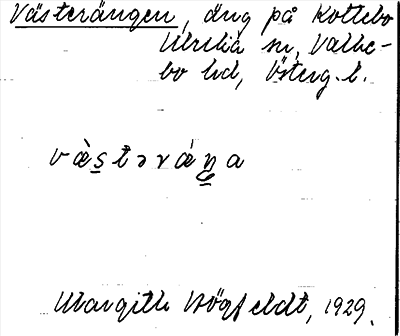 Västerängen, äng på Kottebo
Ulrika sn, Valke-
bo hd, Österg. l.
væ̀stəráŋa
Margith Högfeldt, 1929.